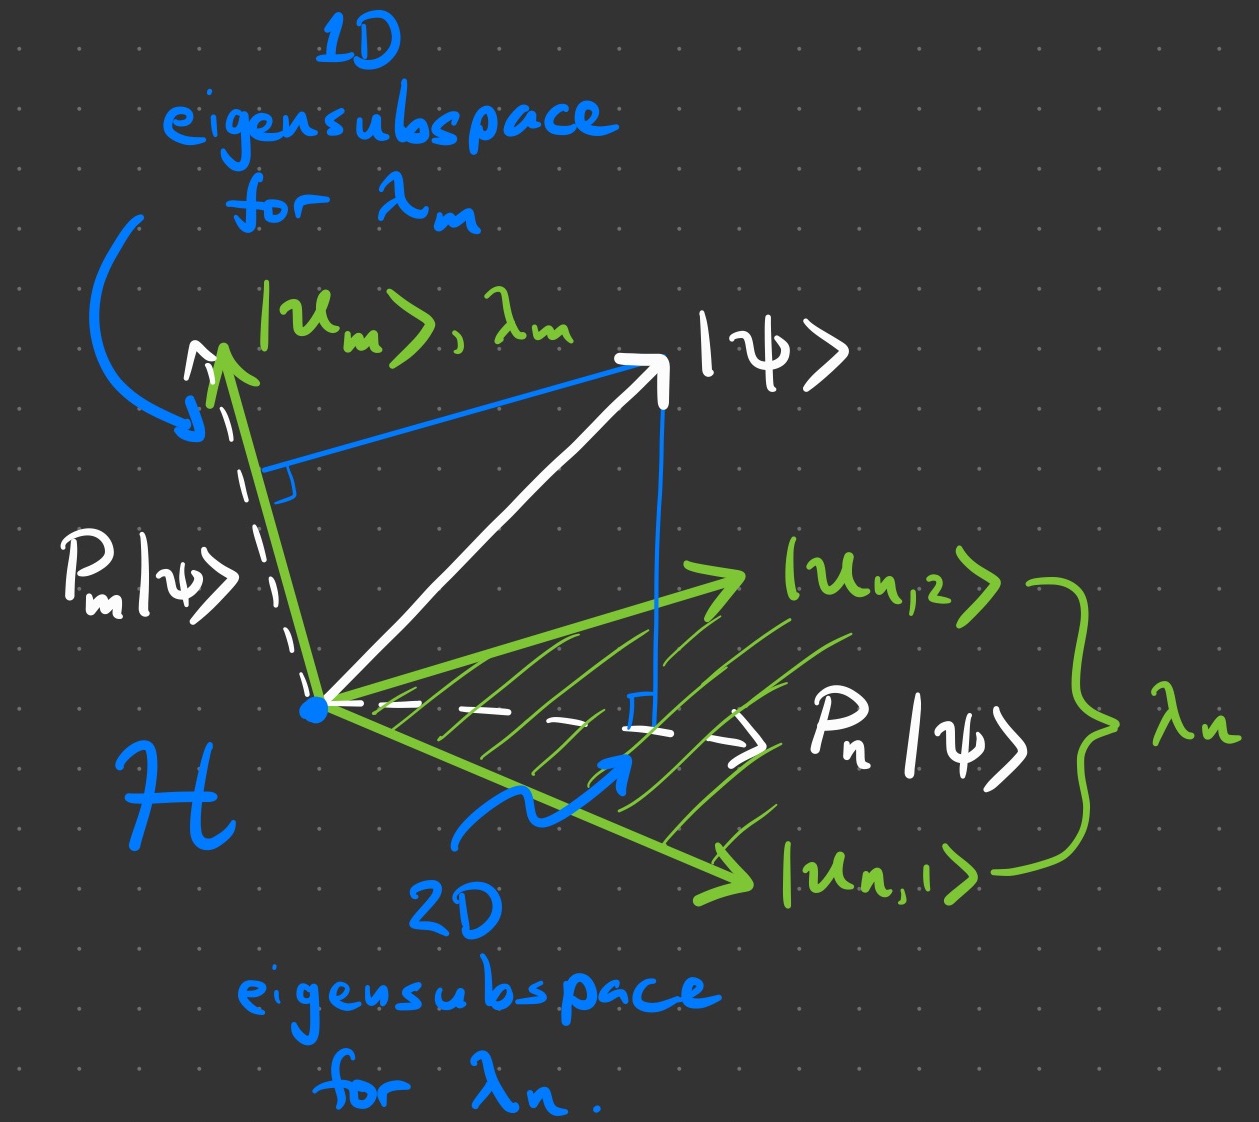 1D
eigensubspace
for λm
|um>, λm
|ψ>
Pm|ψ>
|un,2>
λn
Pn |ψ>
H
|un,1>
2D
eigensubspace
for λn.